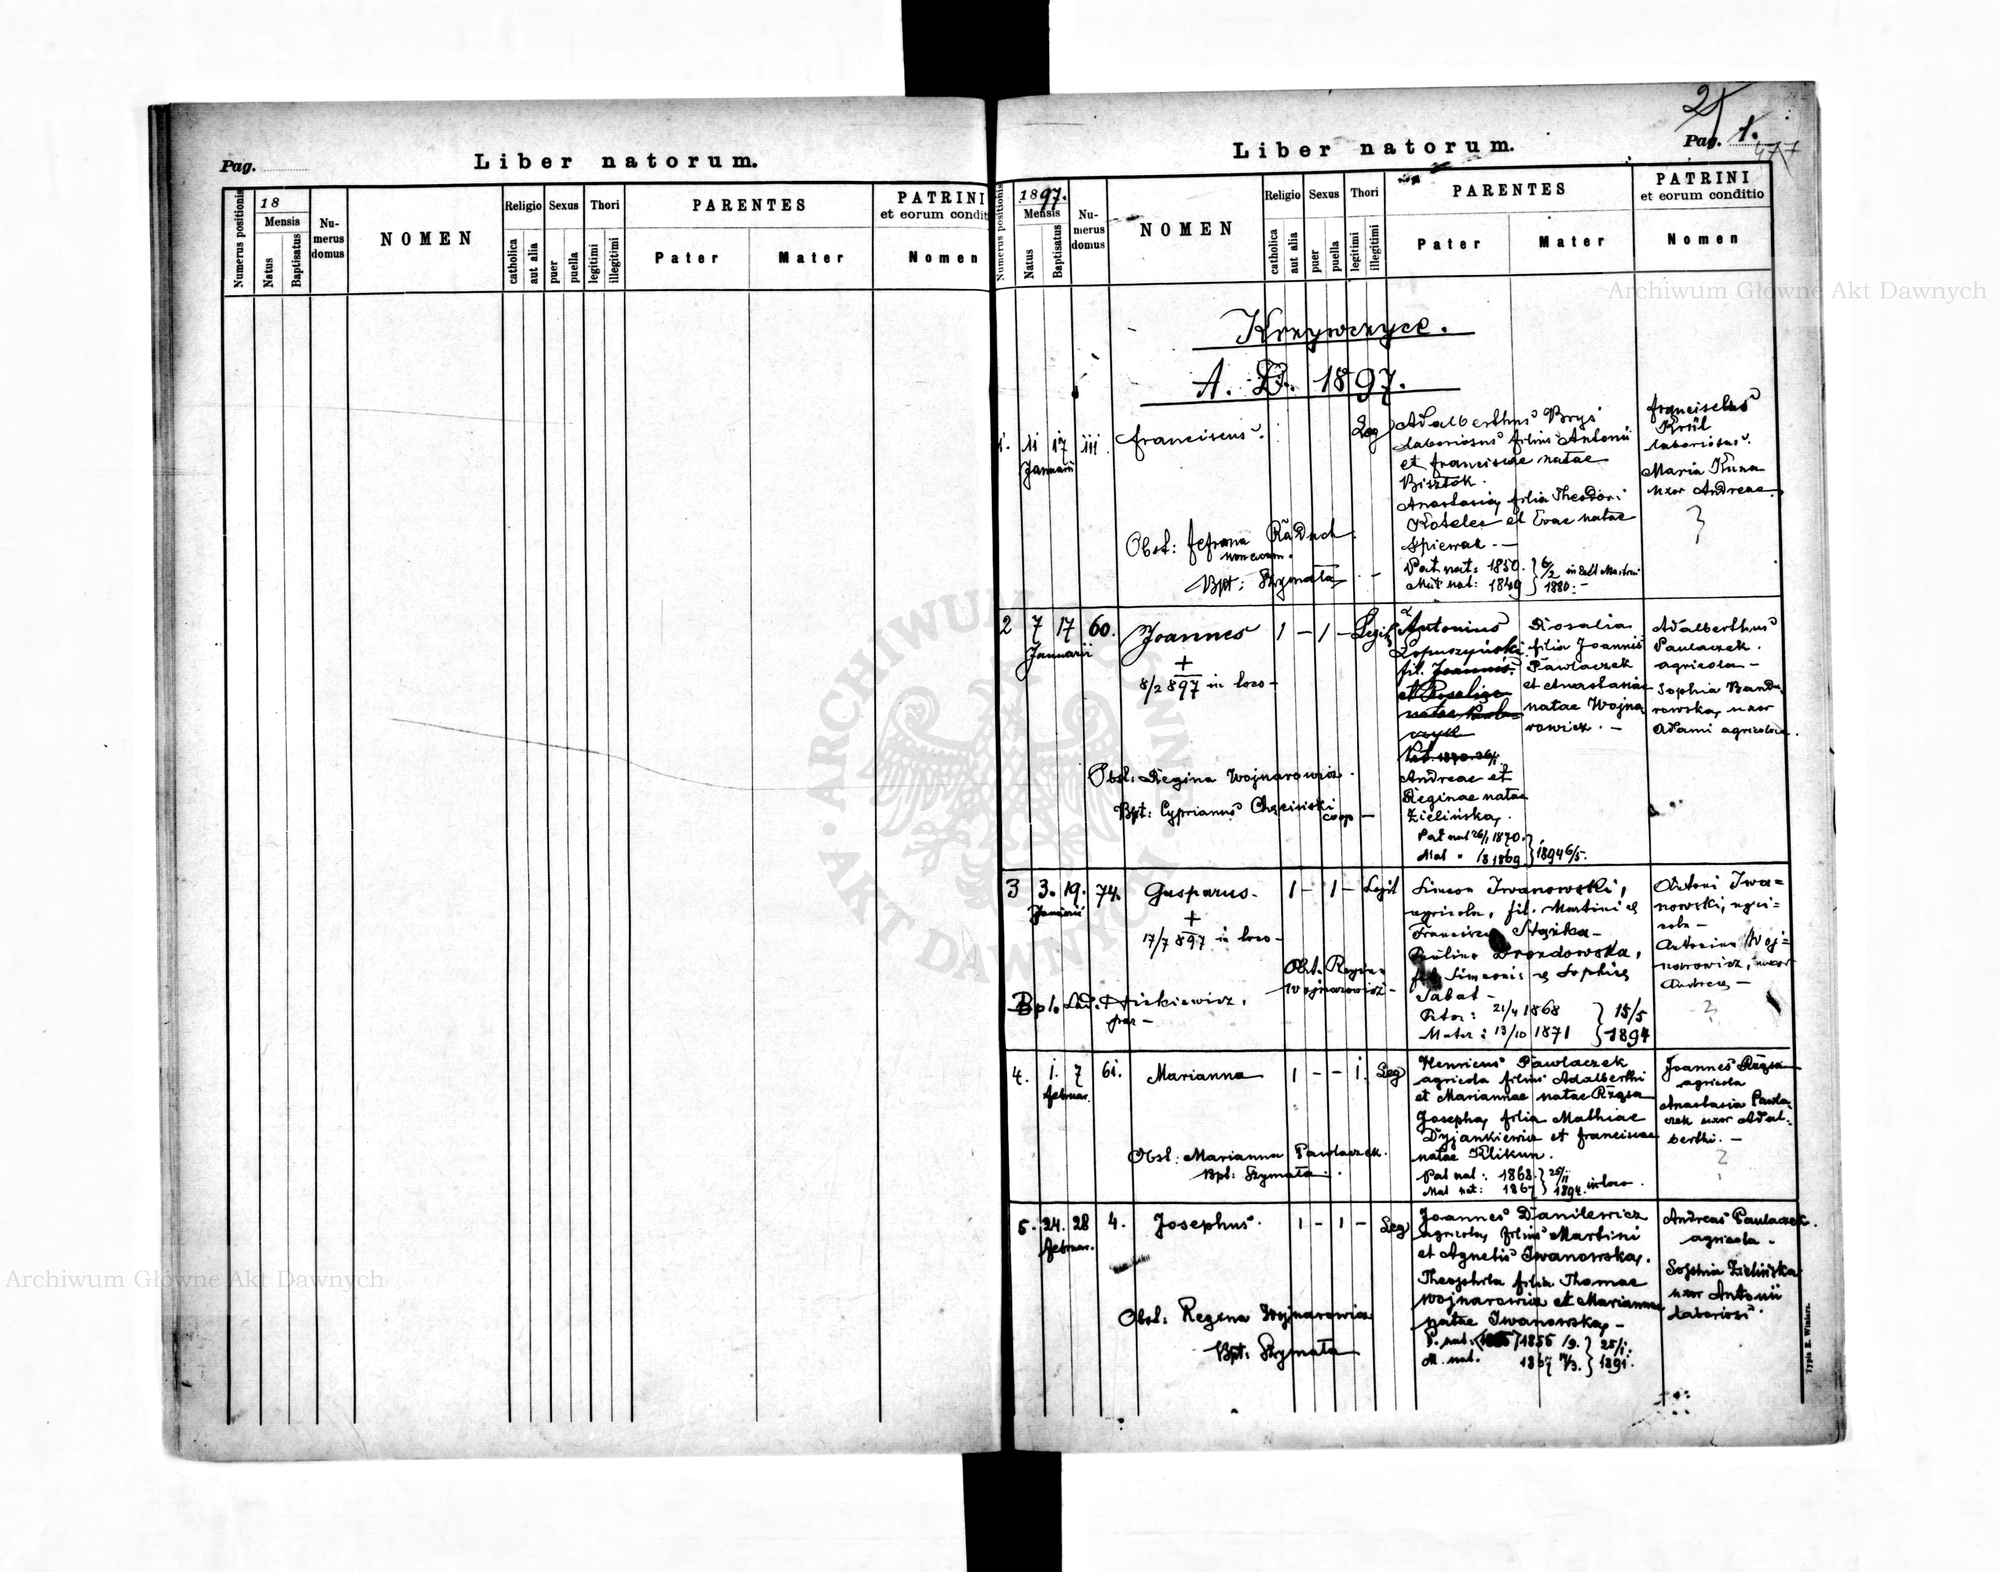 Pag.
Liber natorum.
Numerus positionis
18
Mensis
Natus
Baptisatus
Nu-
merus
domus
NOMEN
Religio
catholica
aut alia
Sexus
puer
puella
Thori
legitimi
illegitimi
PARENTES
Pater
Mater
PATRINI
et eorum condit
Nomen
2
Liber natorum.
Pag. 1.
477
Numerus positionis
1897.
Mensis
Natus
Baptisatus
Nu-
merus
domus
NOMEN
Religio
catholica
aut alia
Sexus
puer
puella
Thori
legitimi
illegitimi
PARENTES
Pater
Mater
PATRINI
et eorum conditio
Nomen
Archiwum Główne Akt Dawnych
Krzywczyce.
A. D. 1897.
1. 11 17 111. Franciscus. Leg
Januarii
Adalberthus Bryś
laboriosus filius Antonii
et Franciscae natae
Bisztok.
Anastasia, filia Theodori
Kotelec et Evae natae
Spiewak. —
Pat nat: 1850. } 6/2
Mat nat: 1849 } 1880. —
Franciscus
Król
laboriosus.
Maria Kuna
uxor Andreae.
Obst:
Bpt: Szymała
2 7 17 60. Joannes 1 — 1 — Legit
Januarii
+
8/2 897 in loco —
Antonius
Łopuszyński
fil. Joannis
et Rosaliae
natae
Andreae et
Reginae natae
Zielińska.
Pat nat 26/1 1870. }
Mat " 1869 } 1894 6/5.
Rosalia
filia Joannis
Pawlaczek
et Anastasiae
natae Wojna
rowicz. —
Adalberthus
Pawlaczek.
agricola —
Sophia Band
rowska, uxor
Adami agricola.
Obst: Regina Wojnarowicz.
Bpt: Cyprianus Chęciński
coop —
3 3. 19. 74. Gasparus. 1 — 1 — Legit
Januarii
+
17/7 897 in loco —
Simeon Iwanowski,
agricola, fil. Martini &
Francisca
Paulina Drozdowska,
fil. Simeonis & Sophiae
Sabat —
Pater: 21/4 1868 } 15/5
Mater: 13/10 1871 } 1894
Antoni Iwa=
nowski, agri=
cola —
Antonina Woj=
narowicz, uxor
Andreae —
Obst. Regina
Wojnarowicz —
Bpt. Lad.
par —
4. 1. 7 61. Marianna 1 — — 1. Leg
Februar.
Henricus Pawlaczek
agricola filius Adalberthi
et Mariannae natae Rzęsa
Josepha, filia Mathiae
Dyjankiewicz et Franciscae
natae Klikun.
Pat nat: 1868. } 25/11
Mat nat: 1867 } 1894. in loco.
Joannes Rzęsa
agricola
Anastasia Pawla
czek uxor Adal-
berthi. —
Obst: Marianna Pawlaczek.
Bpt: Szymała.
5. 24. 28 4. Josephus. 1 — 1 — Leg
Februar.
Joannes Danilewicz
agricola, filius Martini
et Agnetis Iwanowska.
Theophila filia Thomae
Wojnarowicz et Mariannae
natae Iwanowska, —
P. nat: 1855 /9. } 25/1.
M. nat. 1867 /3. } 1891.
Andreas Pawlaczek.
agricola.
Sophia Zielińska
uxor Antonii
laboriosi.
Obst: Regina Wojnarowicz
Bpt: Szymała
Typis E. Winiarz.
ARCHIWUM GŁÓWNE
AKT DAWNYCH
Archiwum Główne Akt Dawnych